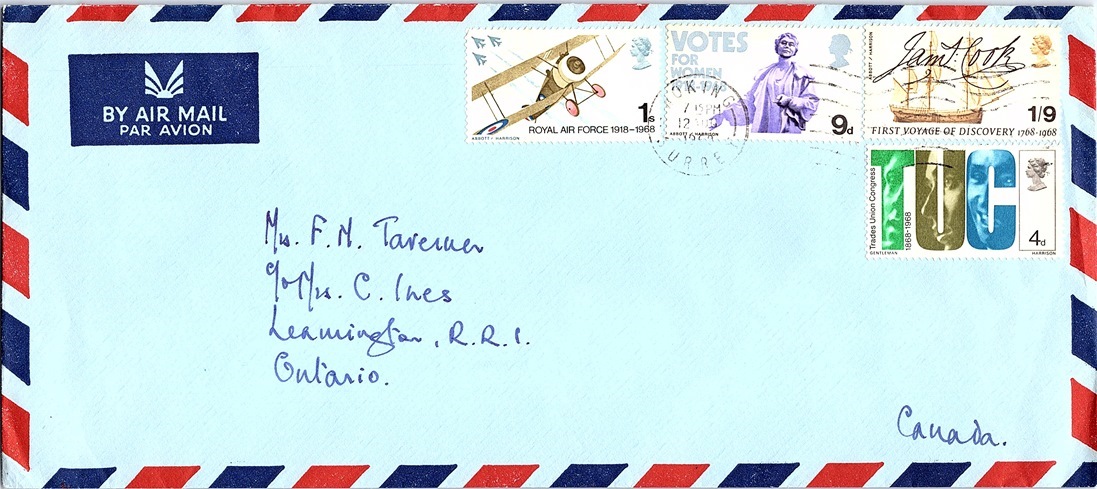 BY AIR MAIL
PAR AVION
1s
ROYAL AIR FORCE 1918-1968
ABBOTT / HARRISON
VOTES
FOR
WOMEN
9d
ABBOTT / HARRISON
Jam.s Cook
1/9
FIRST VOYAGE OF DISCOVERY 1768-1968
ABBOTT / HARRISON
TUC
Trades Union Congress
1868-1968
4d
GENTLEMAN
HARRISON
WOKING
7 15 PM
12
SURREY
Mrs. F. N. Taverner
c/o Mrs. C. Ines
Leamington, R.R.1.
Ontario.
Canada.